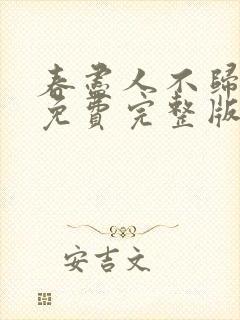 春盡人不歸
免費完整版
安吉文